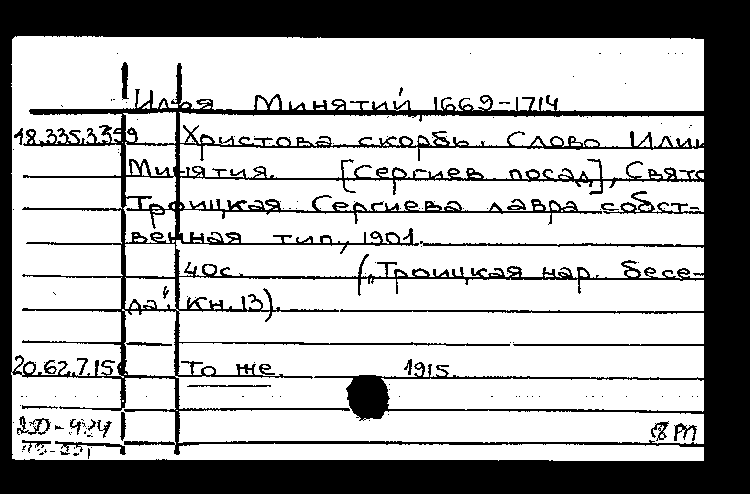 Илья Минятий, 1669-1714
18.335.3.359 Христова скорбь. Слово Илии
Минятия. [Сергиев посад], Свято
Троицкая Сергиева лавра собст-
венная тип., 1901.
40с. („Троицкая нар. бесе-
да". Кн.13).
20.62.7.15 То же. 1915.